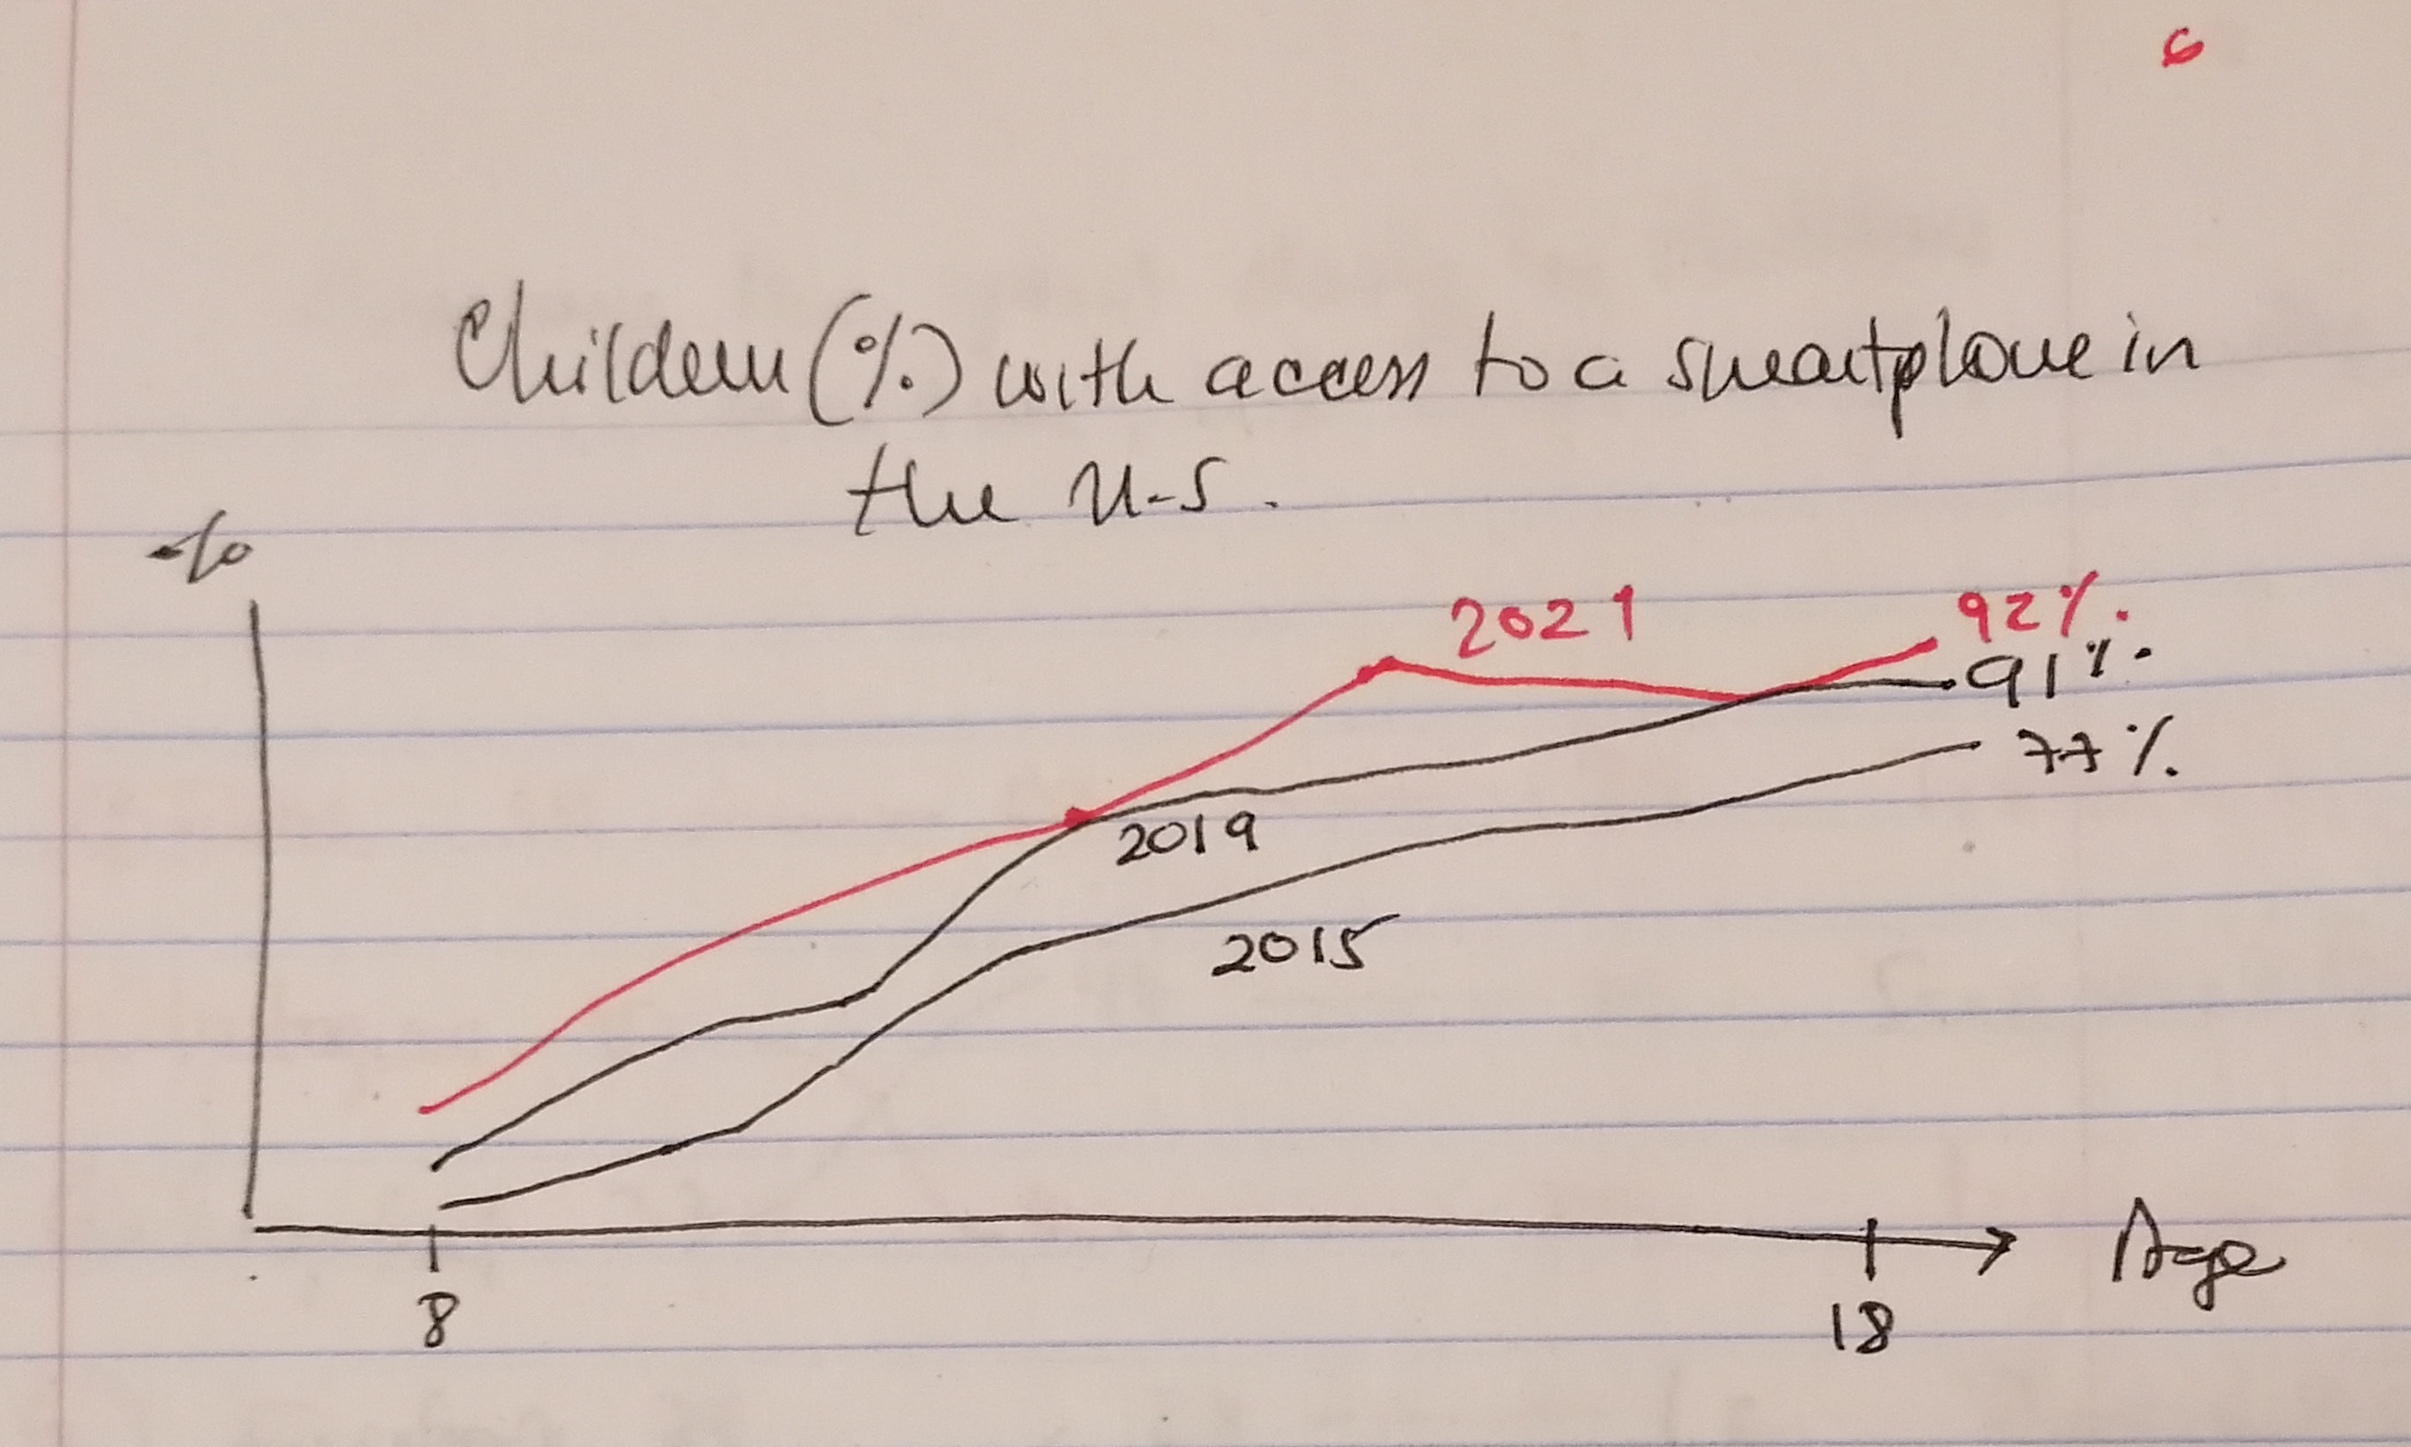 6
Children (%) with access to a smartphone in
the U.S.
%
2021
92%.
91%.
77%.
2019
2015
Age
8
18